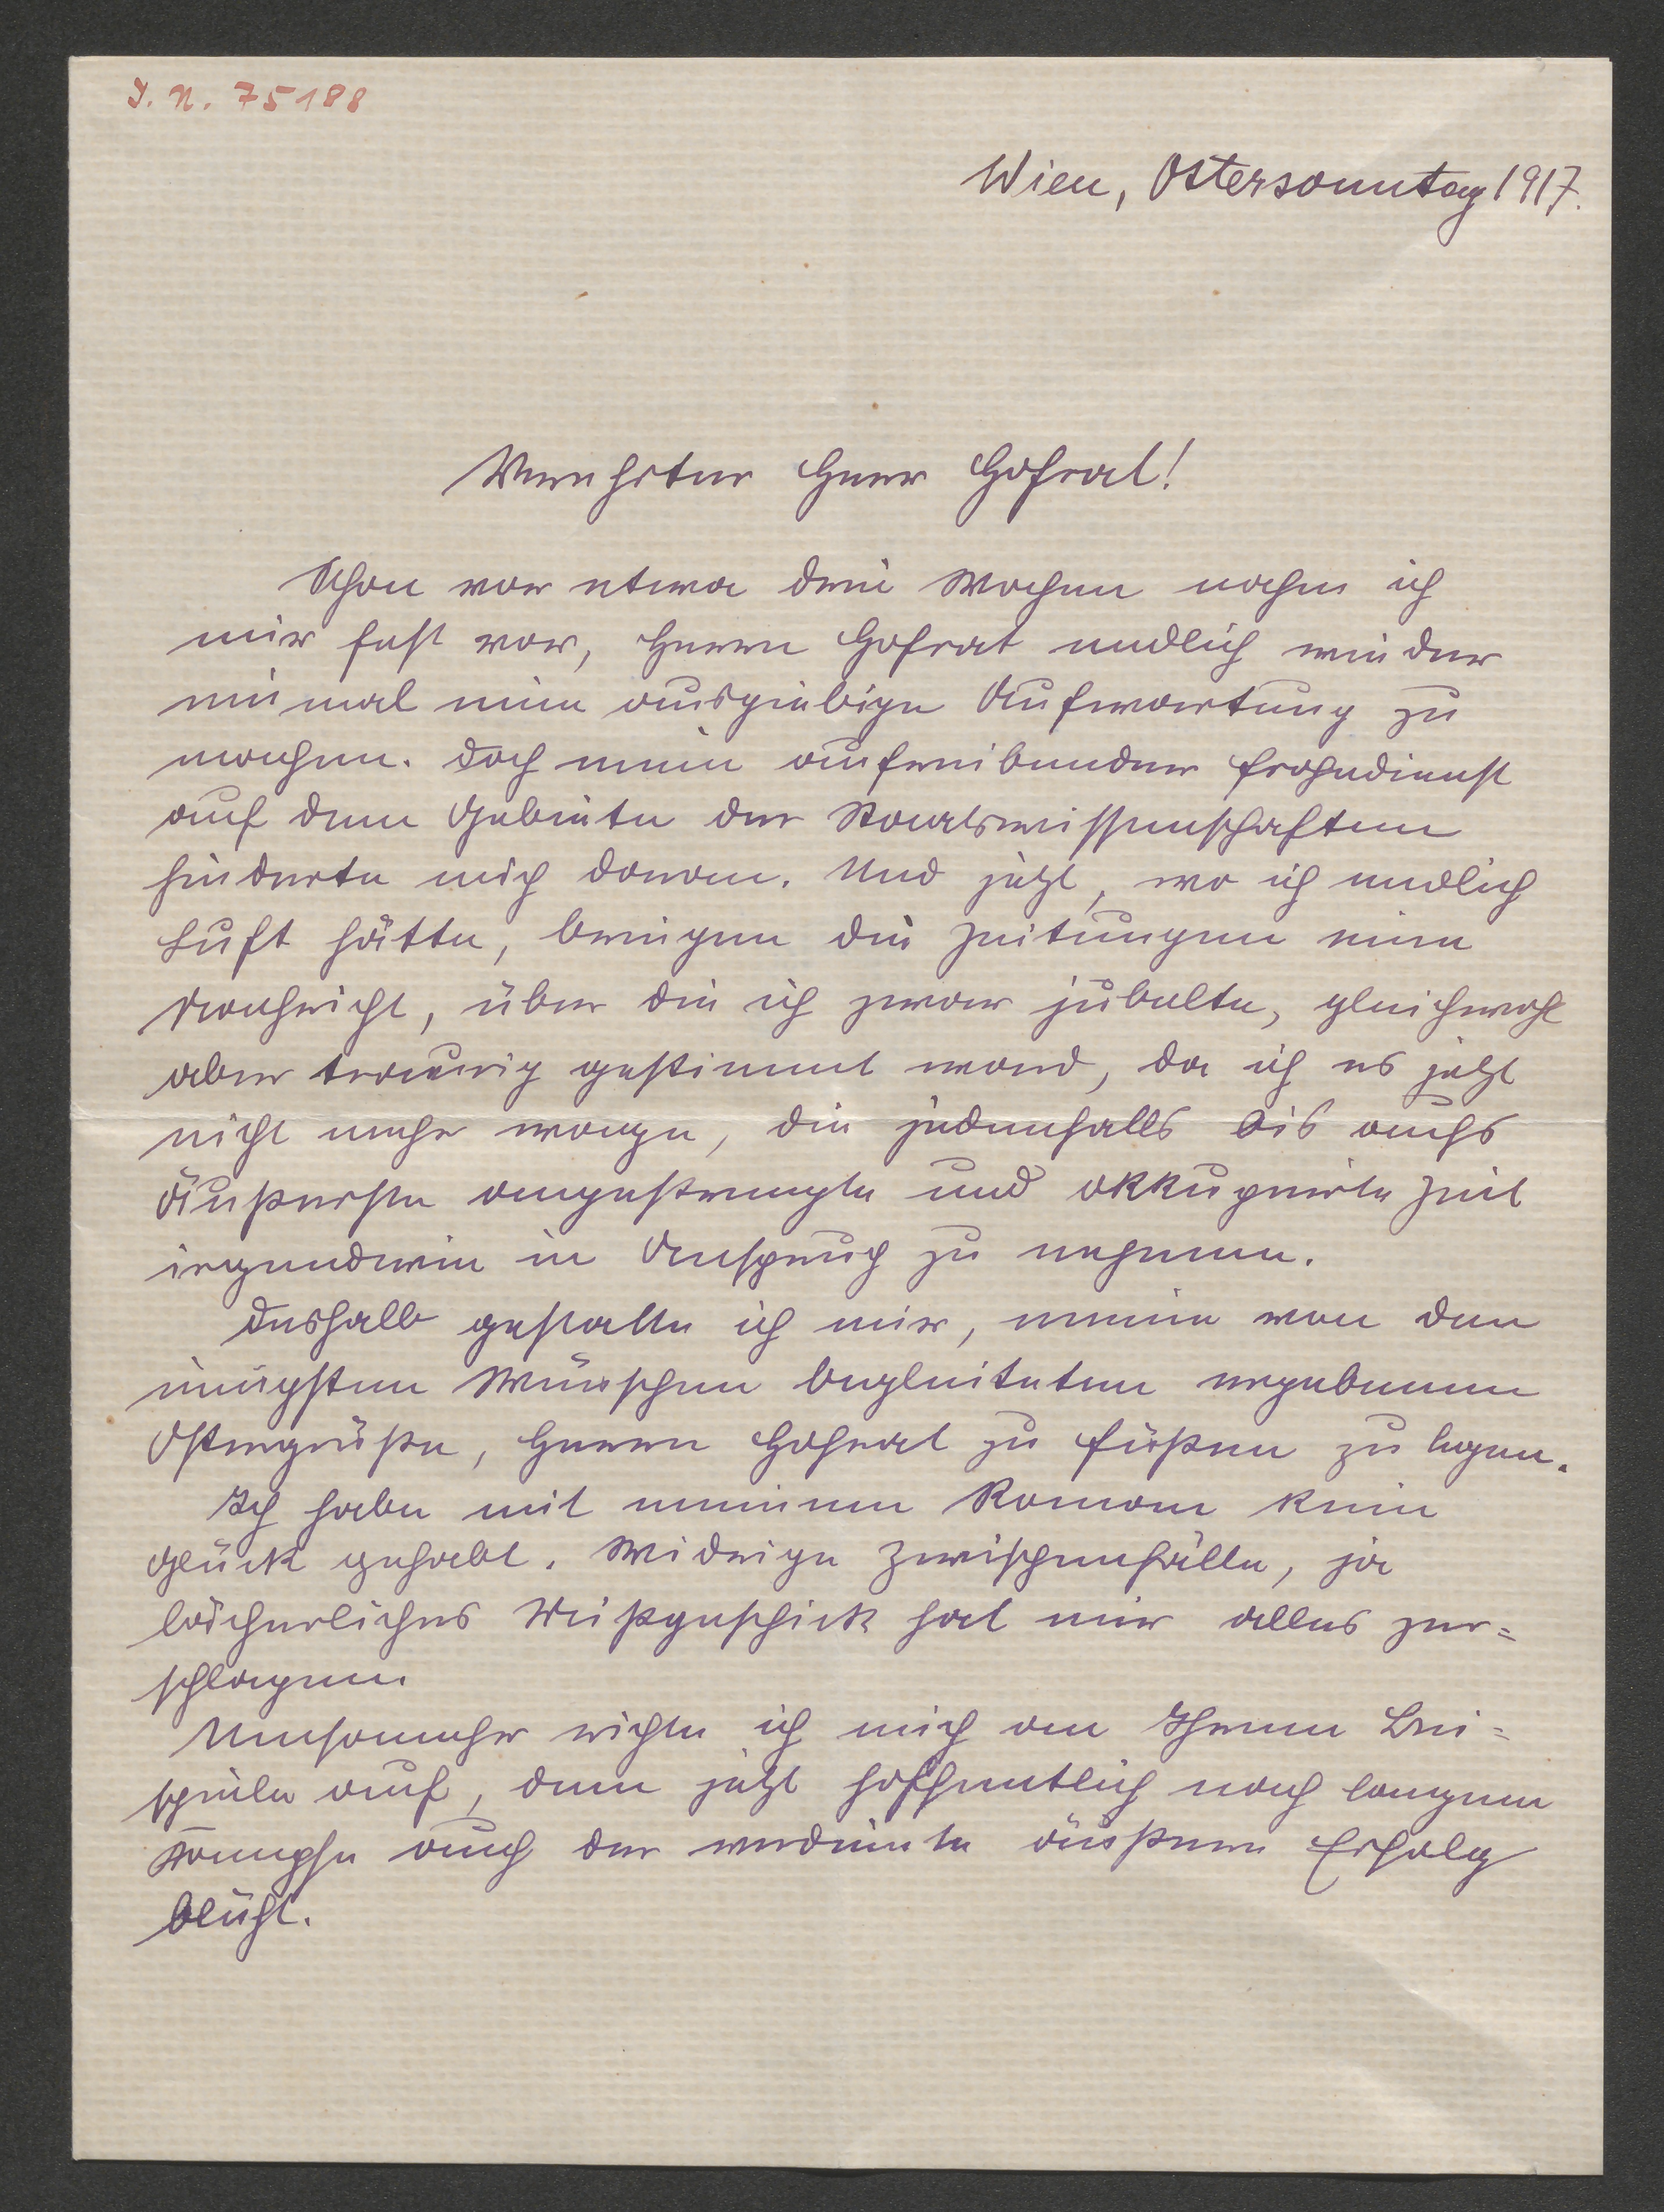 I. N. 75188
Wien, Ostersonntag 1917.
Verehrter Herr Hofrat!
Schon vor etwa drei Wochen nahm ich
mir fest vor, Herrn Hofrat endlich wieder
einmal eine ausgiebige Aufwartung zu
machen. Doch mein aufreibender Frohndienst
auf dem Gebiete der Staatswissenschaften
hinderte mich daran. Und jetzt, wo ich endlich
Luft hätte, bringen die Zeitungen eine
Nachricht, über die ich zwar jubelte, gleichwohl
aber traurig gestimmt ward, da ich es jetzt
nicht mehr wage, die jedenfalls bis aufs
Äußerste angestrengte und okkupierte Zeit
irgendwie in Anspruch zu nehmen.
Deshalb gestatte ich mir, meine von den
innigsten Wünschen begleiteten ergebenen
Ostergrüße, Herrn Hofrat zu Füßen zu legen.
Ich habe mit meinem Roman kein
Glück gehabt. Widrige Zwischenfälle, ja
lächerliches Mißgeschick hat mir alles zer=
schlagen.
Umsomehr richte ich mich an Ihrem Bei=
spiele auf, dem jetzt hoffentlich nach langem
Kampfe auch der verdiente äußere Erfolg
blüht.